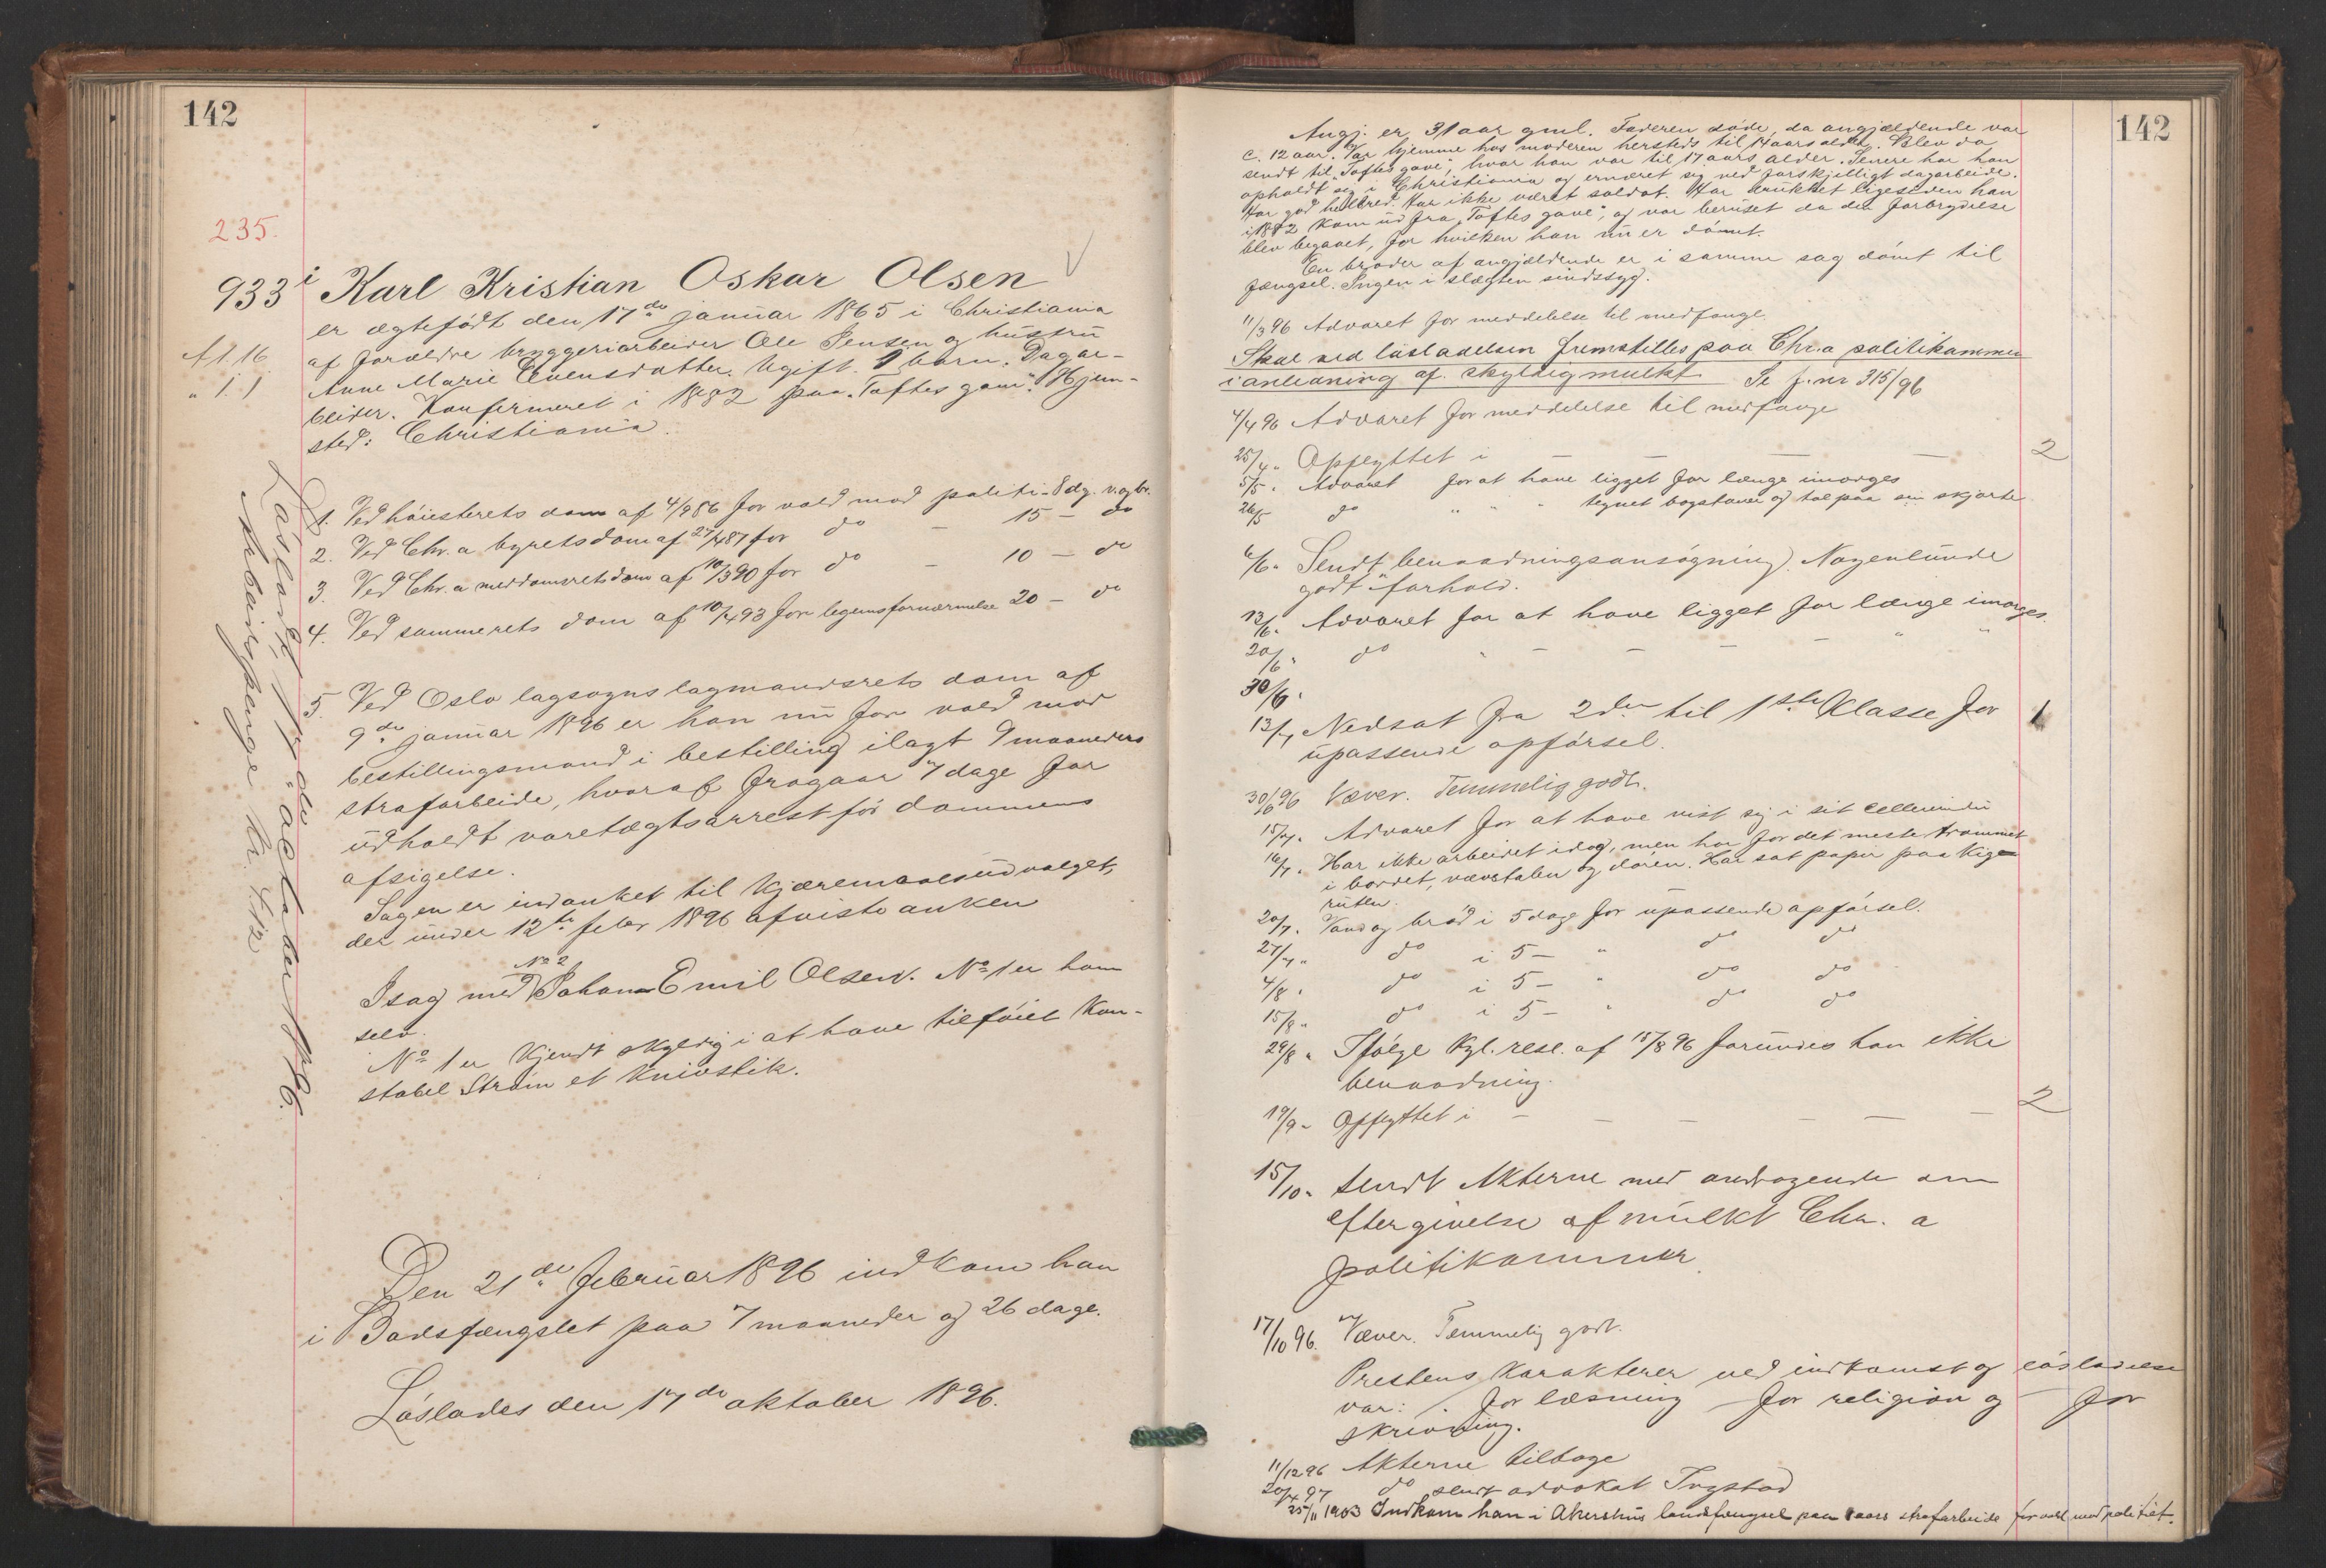 142
235.
933 i Karl Kristian Oskar Olsen
er ægtefödt den 17de januar 1865 i Christiania
af forældre bryggeriarbeider Ole Jensen og hustru
Anne Marie Evensdatter. Ugift. 1 barn. Dagar-
beider. Konfirmeret i 1882 paa "Toftes gave". Hjem-
sted: Christiania.
1. Ved höiesterets dom af 4/9 86 for vold mod politi - 8 dg. v. og br.
2. Ved Chr.a byretsdom af 27/4 87 for do - 15 - do
3. Ved Chr.a meddomsretsdom af 10/3 90 for do - 10 - do
4. Ved sammerets dom af 10/4 93 for legemsfornærmelse 20 - do
5. Ved Oslo lagsogns lagmandsrets dom af
9de januar 1896 er han nu for vold mod
bestillingsmand i bestilling ilagt 9 maaneders
strafarbeide, hvoraf fragaar 7 dage for
udholdt varetægtsarrest för dommens
afsigelse.
Sagen er indanket til Kjæremaalsudvalget,
der under 12te febr 1896 afviste anken
No 2
I sag med Johan Emil Olsen. No 1 er ham
selv.
No 1 er Kjendt skyldig i at have tilföiet Kon-
stabel Ström et Knivstik.
Den 21de februar 1896 indkom han
i Bodsfængslet paa 7 maaneder og 26 dage.
Löslades den 17de oktober 1896.
Lösladt 17de oktober 1896.
Arbeidspenge Kr.
142
Angj. er 31 aar gml. Faderen döde, da angjældende var
c. 12 aar. Var hjemme hos moderen hersteds til 14 aarsalder. Blev da
sendt til "Toftes gave", hvor han var til 17 aars alder. Senere har han
opholdt sig i Christiania og ernæret sig ved forskjelligt dagarbeide.
Har god helbred. Har ikke været soldat. Har drukket ligesiden han
i 1882 kom ud fra "Toftes gave", og var beruset da den forbrydelse
blev begaaet, for hvilken han nu er dömt.
En broder af angjældende er i samme sag dömt til
fængsel. Ingen i slægten sindssyg.
11/3 96 Advaret for meddelelse til medfange.
Skal ved lösladelsen fremstilles paa Chr.a politikammer
i anledning af skyldig mulkt. Se j.nr 315/96
4/4 96 Advaret for meddelelse til medfange
25/4 " Opflyttet i — — — — 2
5/5 " Advaret for at have ligget for længe imorges
26/5 do " " " tegnet bogstaver og tal paa sin skjorte
6/6 " Sendt benaadningsansögning. Nogenlunde
godt forhold.
13/6 " Advaret for at have ligget for længe imorges.
20/6 " do " — — — " "
30/6 "
13/7 Nedsat fra 2den til 1ste Klasse for 1
upassende opförsel.
30/6 96 Væver. Temmelig godt.
15/7 " Advaret for at have vist sig i sit cellevindu
16/7 " Har ikke arbeidet idag, men har for det meste trommet
i bordet, vævstolen og dören. Har sat papir paa Kige-
ruten.
20/7 " Vand og bröd i 5 dage for upassende opförsel.
27/7 " do i 5 — " do do
4/8 " do i 5 — " do do
15/8 " do i 5 — " do do
29/8 " Ifölge Kgl. resl. af 15/8 96 forundes han ikke
benaadning.
19/9 " Opflyttet i — — — — — 2
15/10 " Sendt Akterne med andragende om
eftergivelse af mulkt Chr. a
politikammer.
17/10 96. Væver. Temmelig godt.
Prestens Karakterer ved indkomst og lösladelse
var: for læsning for religion og for
skrivning.
11/12 96 Akterne tilbage
20/4 97 do sendt advokat Trystad
25/11 1903 Indkom han i Akershus landsfængsel paa 1 aars strafarbeide for vold mod politiet.